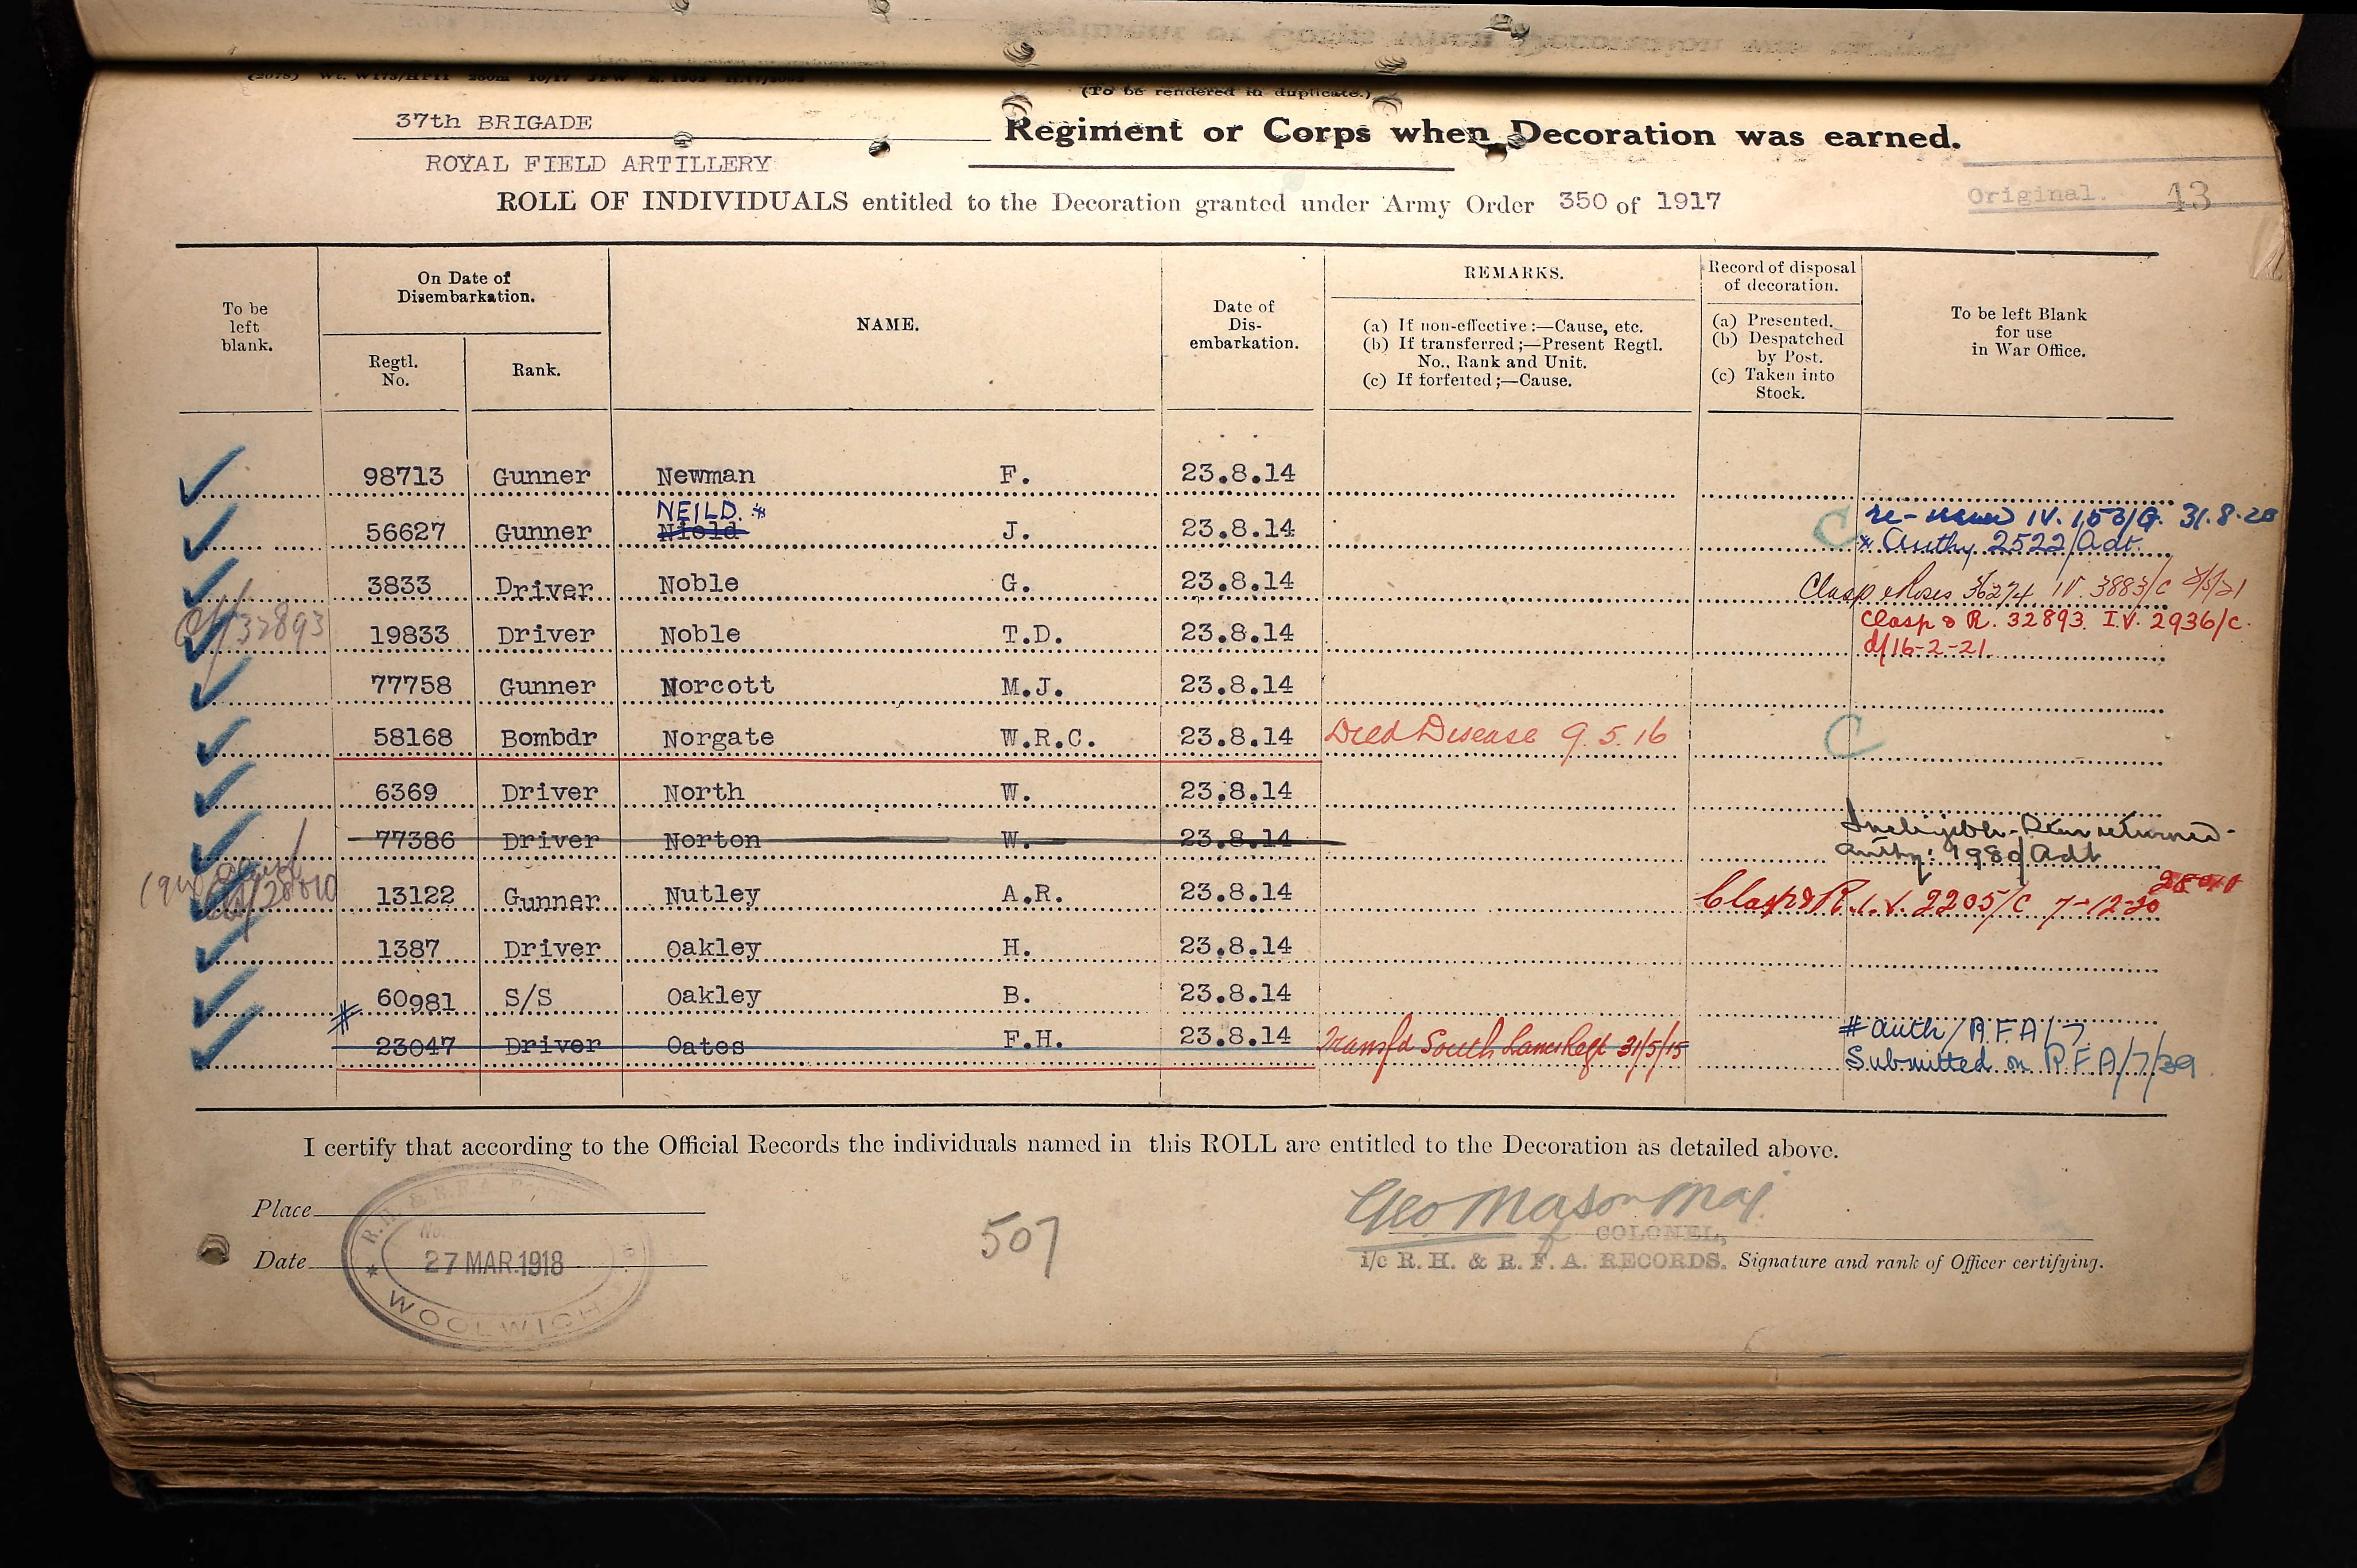 (To be rendered in duplicate.)
37th BRIGADE
Regiment or Corps when Decoration was earned.
ROYAL FIELD ARTILLERY
ROLL OF INDIVIDUALS entitled to the Decoration granted under Army Order 350 of 1917
Original. 43
To be left blank.
On Date of Disembarkation.
Regtl. No.
Rank.
NAME.
Date of Dis-embarkation.
REMARKS.
(a) If non-effective:—Cause, etc.
(b) If transferred;—Present Regtl. No., Rank and Unit.
(c) If forfeited;—Cause.
Record of disposal of decoration.
(a) Presented.
(b) Despatched by Post.
(c) Taken into Stock.
To be left Blank for use in War Office.
98713 Gunner Newman F. 23.8.14
NEILD. *
56627 Gunner Nield J. 23.8.14 C re-issued IV. 153/G. 31.8.20
* Authy 2522/Adt.
3833 Driver Noble G. 23.8.14 Clasp & Roses 36274 IV. 3883/C
C/32893 19833 Driver Noble T.D. 23.8.14 Clasp & R. 32893. I.V. 2936/C.
d/16-2-21.
77758 Gunner Norcott M.J. 23.8.14
58168 Bombdr Norgate W.R.C. 23.8.14 Died Disease 9.5.16 C
6369 Driver North W. 23.8.14
77386 Driver Norton W. 23.8.14 Ineligible - returned -
Authy: 1980/Adt
13122 Gunner Nutley A.R. 23.8.14 Clasp & R. I.V. 2205/C 7-12-20 28010
1387 Driver Oakley H. 23.8.14
60981 S/S Oakley B. 23.8.14
# 23047 Driver Oates F.H. 23.8.14 Transfd South Lancs Regt 31/5/15 # Auth/R.F.A/7.
Submitted on R.F.A/7/39
I certify that according to the Official Records the individuals named in this ROLL are entitled to the Decoration as detailed above.
Place
Date
R.H. & R.F.A.
27 MAR.1918
WOOLWICH
507
Geo Mason Maj
COLONEL,
i/c R. H. & R. F. A. RECORDS. Signature and rank of Officer certifying.